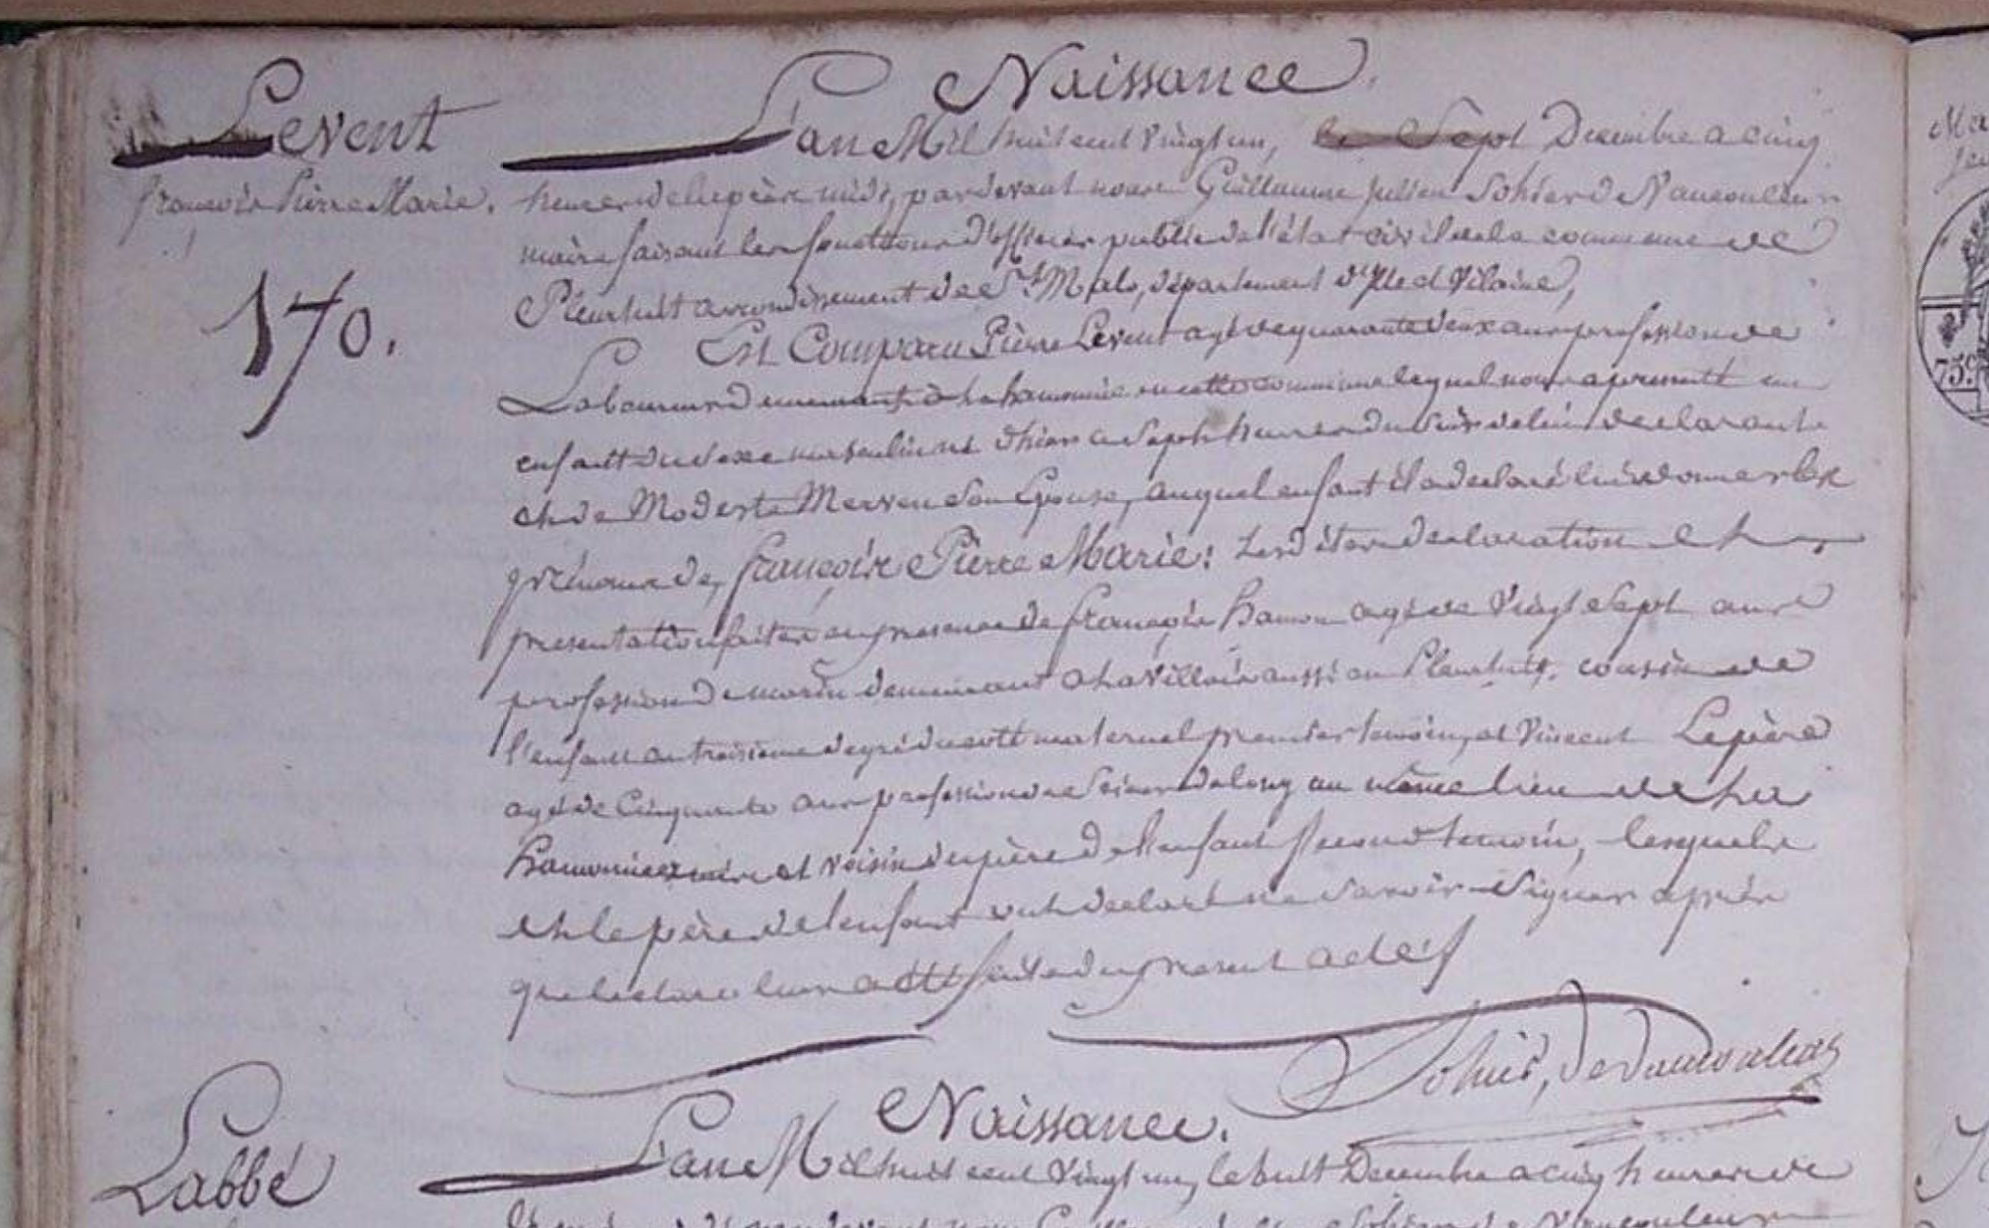 Naissance.
Levent
L'an Mil huit cent vingt un, le Sept Decembre a cinq
françois Pierre Marie.
heures de l'après midi, par devant nous Guillaume Julien Sohier de Vaucouleurs
maire faisant les fonctions d'officier public de l'état civil de la commune de
Pleurtuit arrondissement de St. Malo, département d'Ille et Vilaine,
170.
Est Comparu Pierre Levent agé de quarante deux ans profession de
Laboureur demeurant à la hamonnie en cette commune lequel nous a presenté un
enfant du sexe masculin né d'hier a Sept heures du Soir de lui declarant
et de Modeste Merven Son Epouse, auquel enfant il a declaré lui donner les
prénoms de, françois Pierre Marie: Lesdites declaration et
presentation faites en presence de françois hamon agé de vingt Sept ans
profession de marin demeurant a la Ville aussi en Pleurtuit, cousin de
l'enfant au troisieme degré du coté maternel premier temoin, et Vincent Lepère
agé de Cinquante ans profession de Scieur de long au même lieu de la
hamonnie et voisin du père de l'enfant Second temoin, lesquels
et le père de l'enfant ont declaré ne Savoir Signer après
que lecture leur a été faite du present acte./
Sohier, de Vaucouleurs
Naissance.
Labbé
L'an Mil huit cent vingt un, le huit Decembre a cinq heures de
Ma
75c